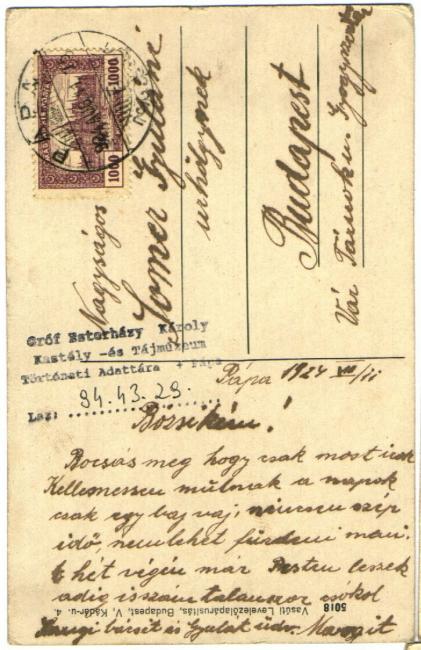 PÁPA
1000 1000
Nagyságos
Somer Gyuláné
urhölgynek
Budapest
Vár Tárnok u. Gyógyszertár
Gróf Esterházy Károly
Kastély -és Tájmúzeum
Történeti Adattára + Pápa
Lsz: 94.43.29.
Pápa 1924 VIII/11
Bözsikém!
Bocsáss meg hogy csak most irok
Kellemessen múlnak a napok
csak egy baj vaj, nincsen szép
idő, nem lehet fürdeni menni.
hét végén már Pesten leszek
adig is számtalanszor csókol
bácsit és Gyulát üdv. Margit
Vasúti Levelezőlapárusítás, Budapest, V, Kádár-u. 4.
5018